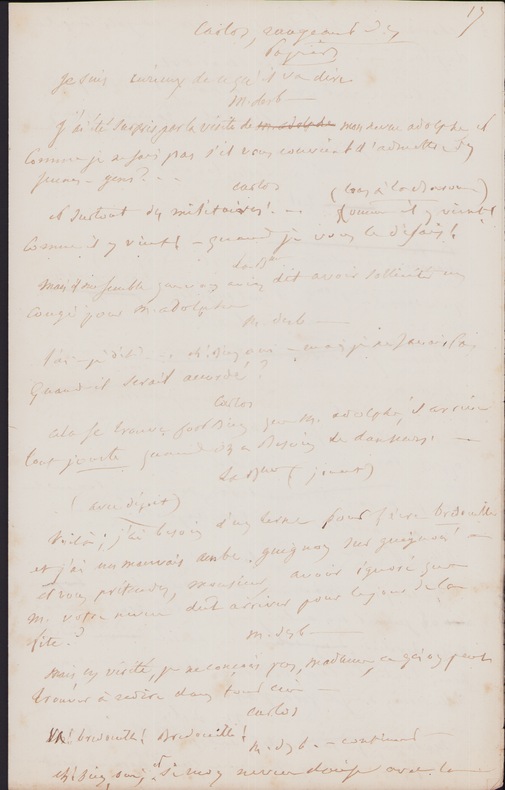 17
Carlos, rangeant des
papiers
Je suis curieux de ce qu'il va dire.
M. desb—
J'ai été surpris par la visite de m. adolphe mon neveu adolphe, et
comme je ne sais pas s'il vous convient d'admettre des
jeunes-gens? - .
Carlos (bas à la Baronne)
et surtout des militaires! - .. (comme il y vient!
comme il y vient! - quand je vous le disais!
La Bne
mais il me semble que vous aviez dit avoir sollicité un
congé pour m. adolphe
M. desb —
l'ai-je dit? ... eh! bien, oui - mais je ne savais pas
quand il serait accordé?
Carlos
cela se trouve fort bien que M. adolphe, s'arrive
tout juste quand on a besoin de danseurs. —
La Bne (jouant)
(avec dépit)
Voilà; j'ai besoin d'un terne pour faire bredouille
et j'ai un mauvais ambe. guignon sur guignon! —
et vous prétendez, monsieur, avoir ignoré que
m. votre neveu dut arriver pour le jour de la
fête?
M. desb —
mais en vérité, je ne conçois pas, madame, ce qu'on peut
trouver à redire dans tout ceci —
Carlos
bredouille! Bredouille!
M. desb. - continuant —
eh! bien, oui, et si mon neveu